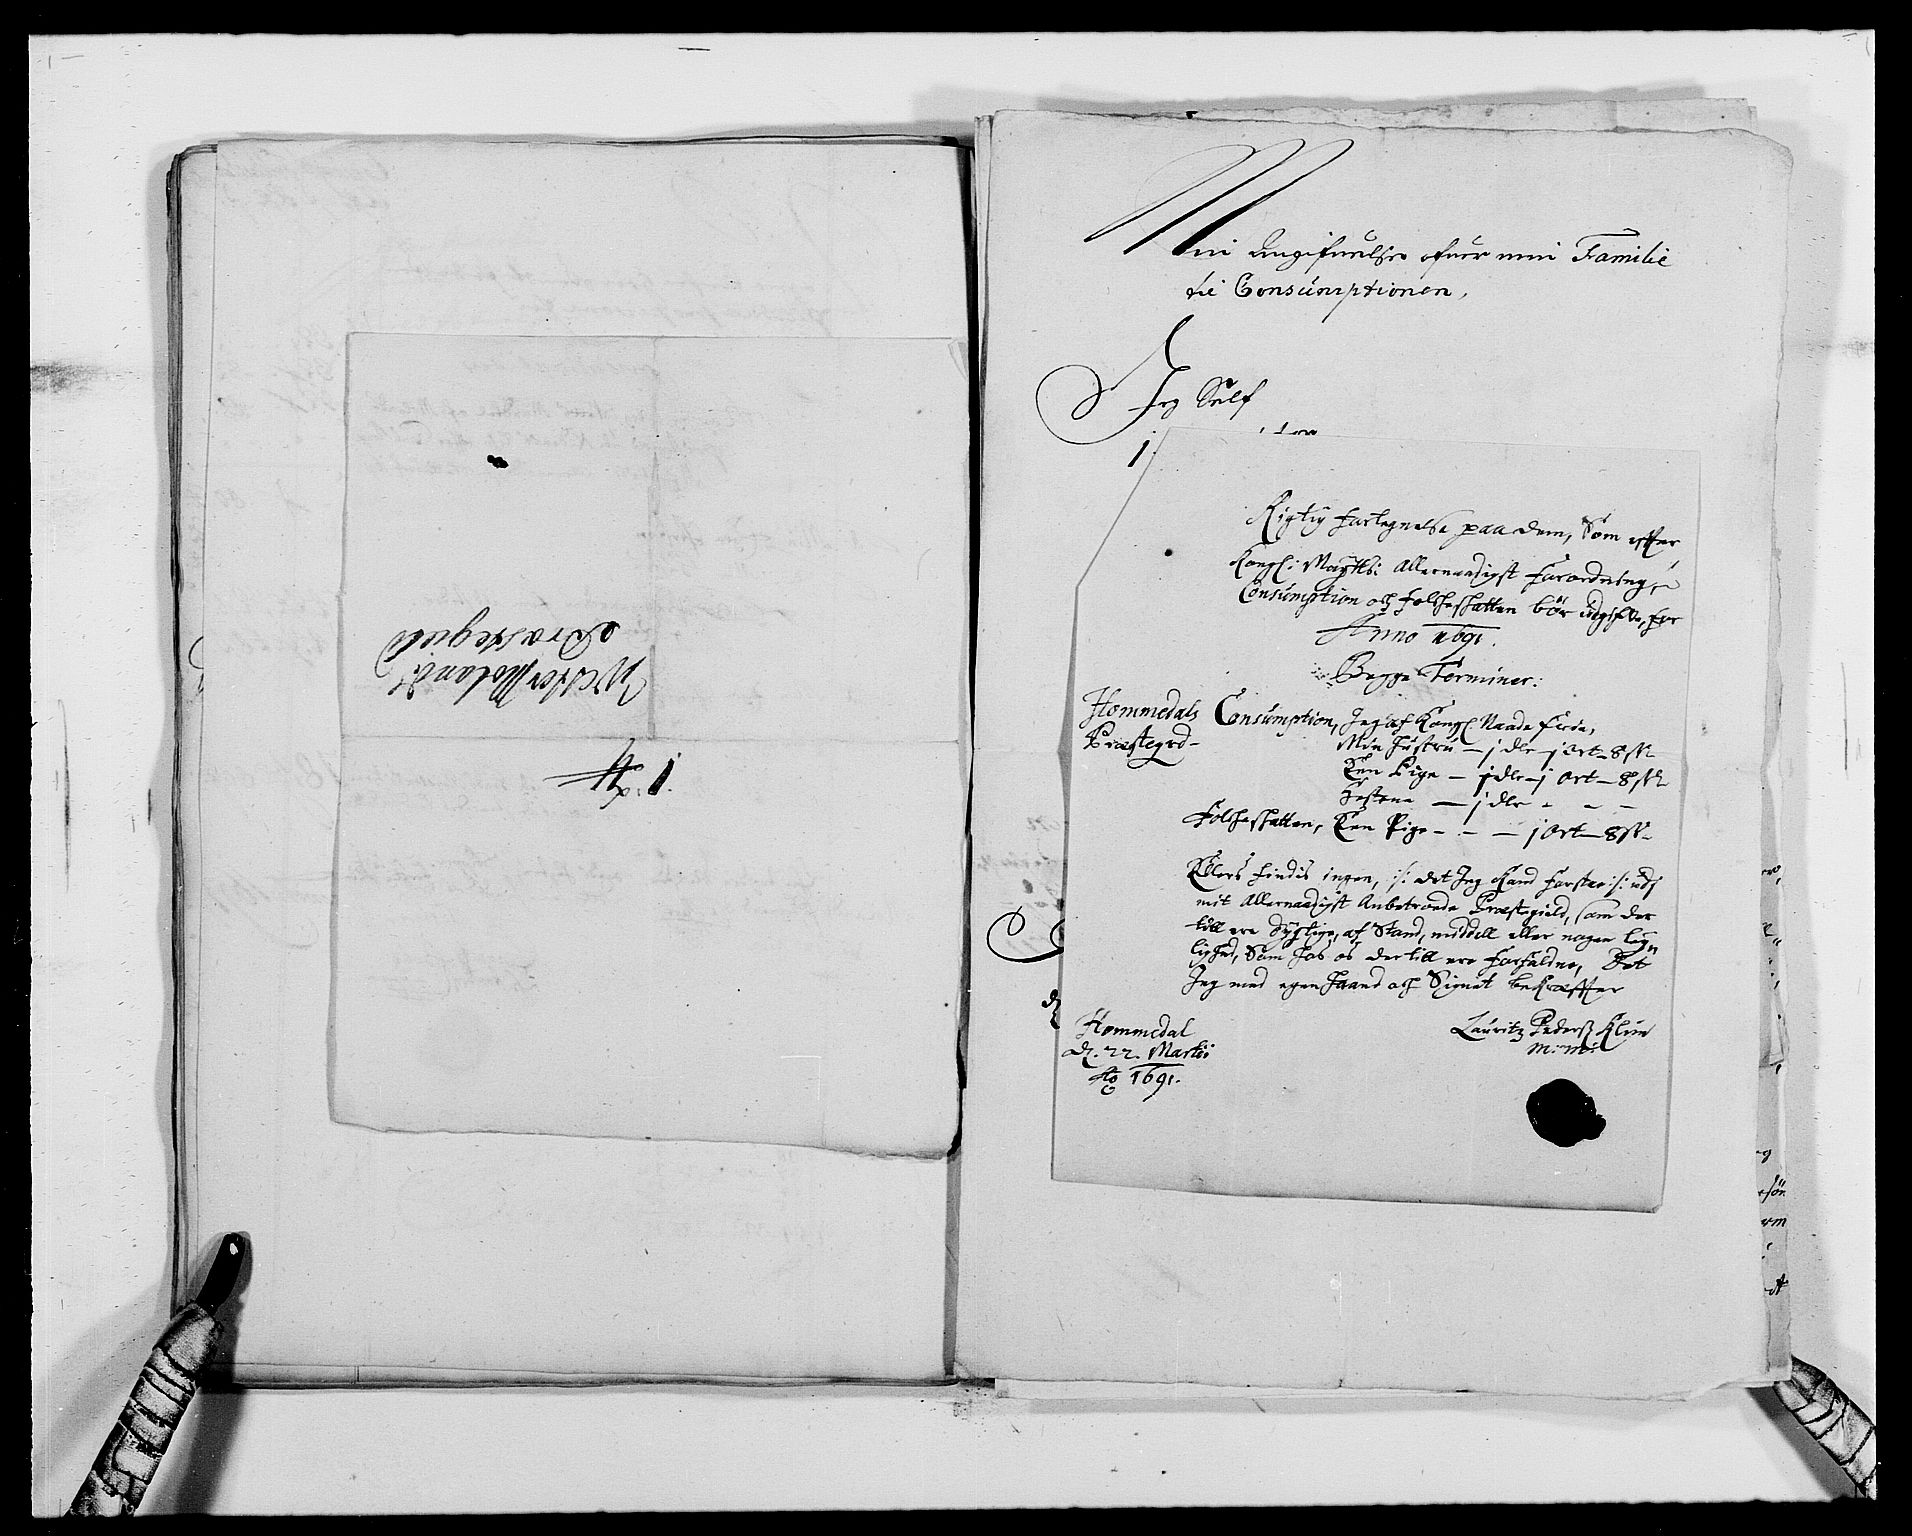 Wester Molands
Præstegield
Min Angifvelse ofver min Familie
til Consumptionen.
Jeg Self
1
Rigtig Fortegnelse paa dem, Som effter
Kongl: Maytts: Allernaadigst Forordning,
Consumption och Folcheskatten bør udgifve, for
Anno 1691.
Begge Terminer:
Hommedals
Præstegrd-
Consumption, Jeg af Kongl. Naade frie,
Min Hustru — j dlr — j ort — 8 sk
Een Pige — j dlr — j ort — 8 sk
Hestene — j dlr - - -
Folcheskatten, Een Pige - - — j ort — 8 sk
Ellers findis ingen, /: det Jeg Kand forstaa :/ udj
mit Allernaadigst Anbetroede Præstegield, som der
till ere dygtige, af Stand, middell eller nogen leg
lighed, Som hos os der till ere forfaldne, Det
Jeg med egen haand och Signet bekræffter
Hommedal
d. 22. Martii
Ao 1691.
Lauritz Pederss Klim
m: m: